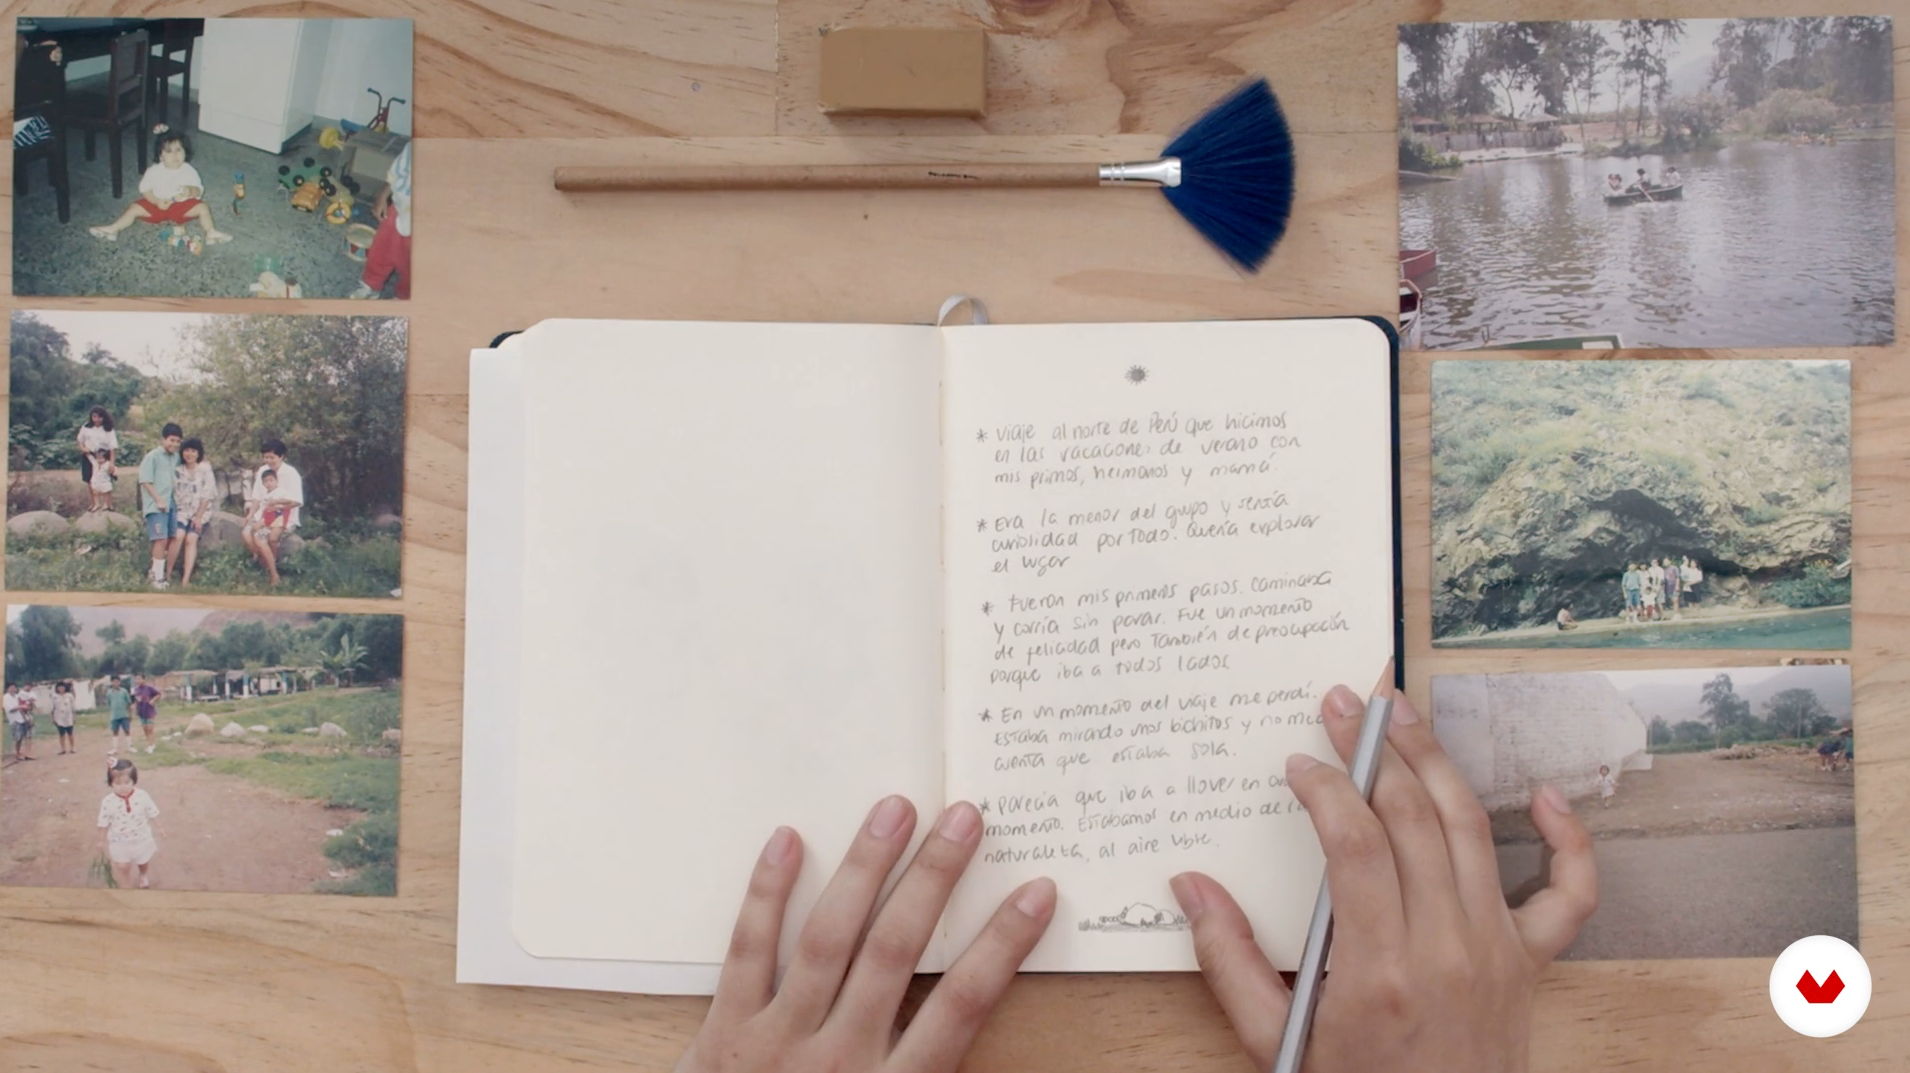 * Viaje al norte de Perú que hicimos
en las vacaciones de verano con
mis primos, hermanos y mamá.
* Era la menor del grupo y sentía
curiosidad por todo. Quería explorar
el lugar
* Fueron mis primeros pasos. Caminaba
y corría sin parar. Fue un momento
de felicidad pero También de preocupación
porque iba a todos lados
* En un momento del viaje me perdí.
Estaba mirando unos bichitos y no me
cuenta que estaba sola.
* Parecía que iba a llover en
momento. Estabamos en medio de
naturaleza, al aire libre.